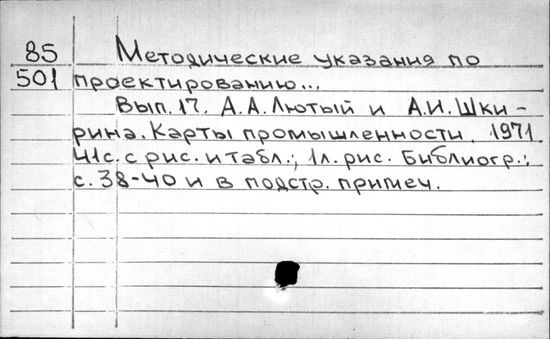 85 Методические указания по
501 проектированию...
Вып. 17. А.А. Лютый и А.И. Шки-
рина. Карты промышленности. 1971.
41 с. с рис. и табл.; 1 л. рис. Библиогр.:
с. 38-40 и в подстр. примеч.